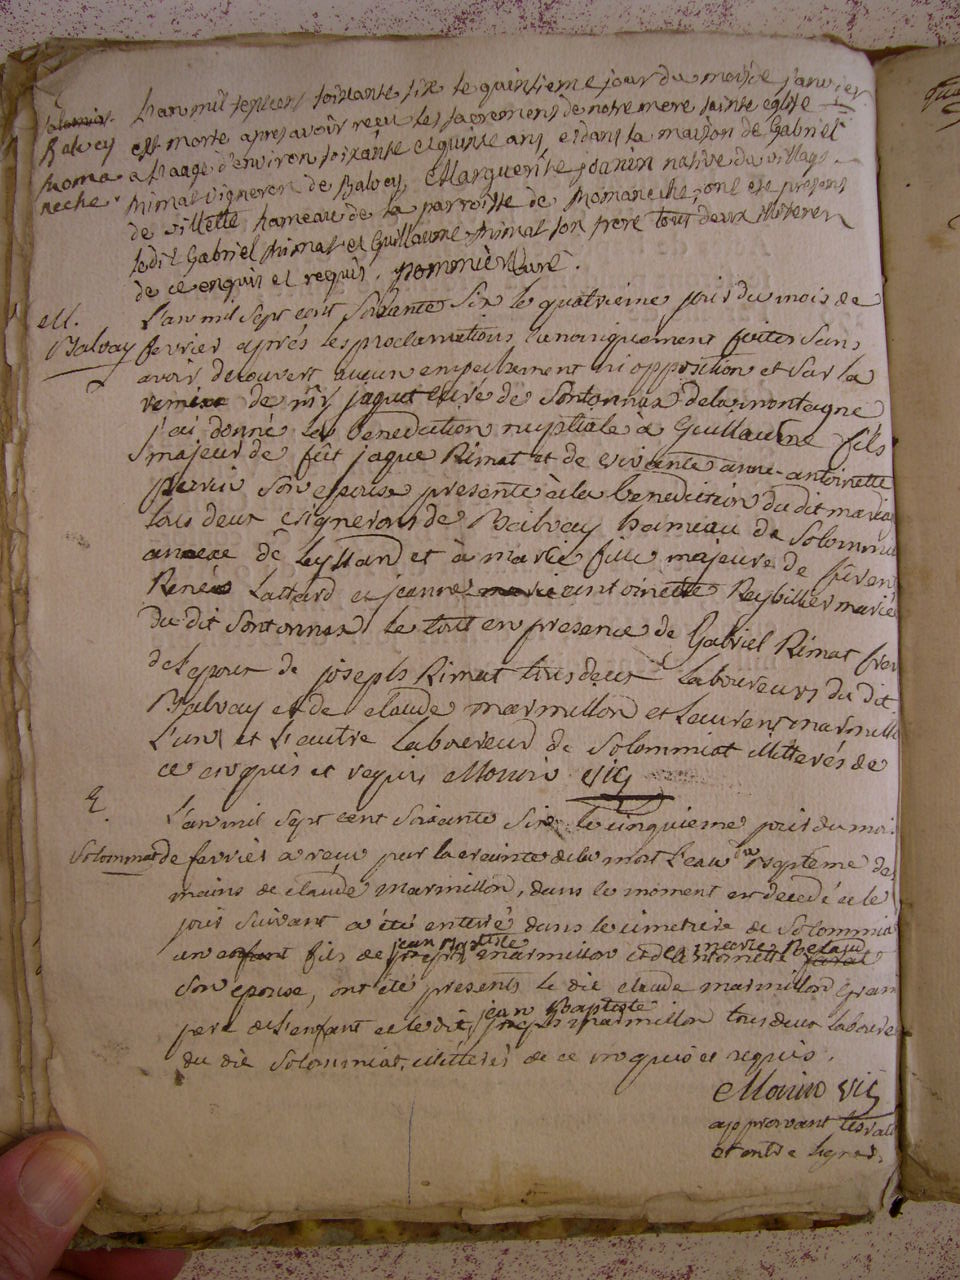 L'an mil septcent soixante six le quinsieme jour du mois de janvier
Balvey est morte apres avoir reçu les sacremens de notre mere sainte eglise
Roma a l'aage d'environ soixante et quinse ans, et dans la maison de Gabriel
neche Rimat vigneron de Balvey, Marguerite janin native du village
de villette hameau de la parroisse de Romaneche, ont ete presens
ledit Gabriel Rimat et Guillaume Rimat son frere tout deux illiteres
de ce enquis et requis. pommier Curé.
M. L'an mil sept cent soixante six le quatrieme jour du mois de
Balvay fevrier aprés les proclamations canoniquement faites sans
avoir decouvert aucun empechement ni opposition et sur la
remise de mr jaquet curé de Sontonnax de la montagne
j'ai donné la benediction nuptiale à Guillaume fils
majeur de fût jaque Rimat et de vivante anne-antoinette
perrin son epouse presente à la benediction du dit mariage
tous deux vignerons de Balvay hameau de Solommiat
annexe de Leyssard et à marie fille majeure de fûrent
René Lattard et jeanne antoinette Reybillier mariés
du dit Sontonnax le tout en presence de Gabriel Rimat frere
de l'epoux de joseph Rimat tous deux laboureurs du dit
Balvay et de claude marmillon et Laurent marmillon
L'un et L'autre laboureur de Solommiat illitterés de
ce enquis et requis Monin vic
E. L'an mil sept cent soixante six le cinquieme jour du mois
Solommiat de fevrier a reçu par la crainte de la mort L'eau du baptême des
mains de claude marmillon, dans le moment en decedé et le
jour suivant a été enterré dans le cimetiere de Solommiat
un enfant fils de jean Baptiste marmillon et de marie
son epouse, ont été presents le dit claude marmillon grand
pere de L'enfant et le dit jean Baptiste marmillon tous deux laboureurs
du dit Solommiat, illitterés de ce enquis et requis.
Monin vic
approuvant les
et entre lignes.